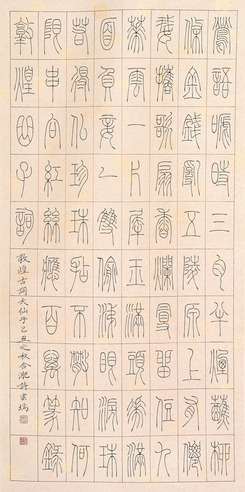 燕語啼時三月半煙蘸柳
條金線亂五陵原上有僊
娥攜歌扇香爛漫留住九
華雲一片犀玉滿頭花滿
面負妾一雙偷淚眼淚珠
若得似珍珠拈不散知何
限串向紅絲應百萬篆錄
敦煌曲子詞
敦煌古詞天仙子己丑之秋合肥許雲瑞